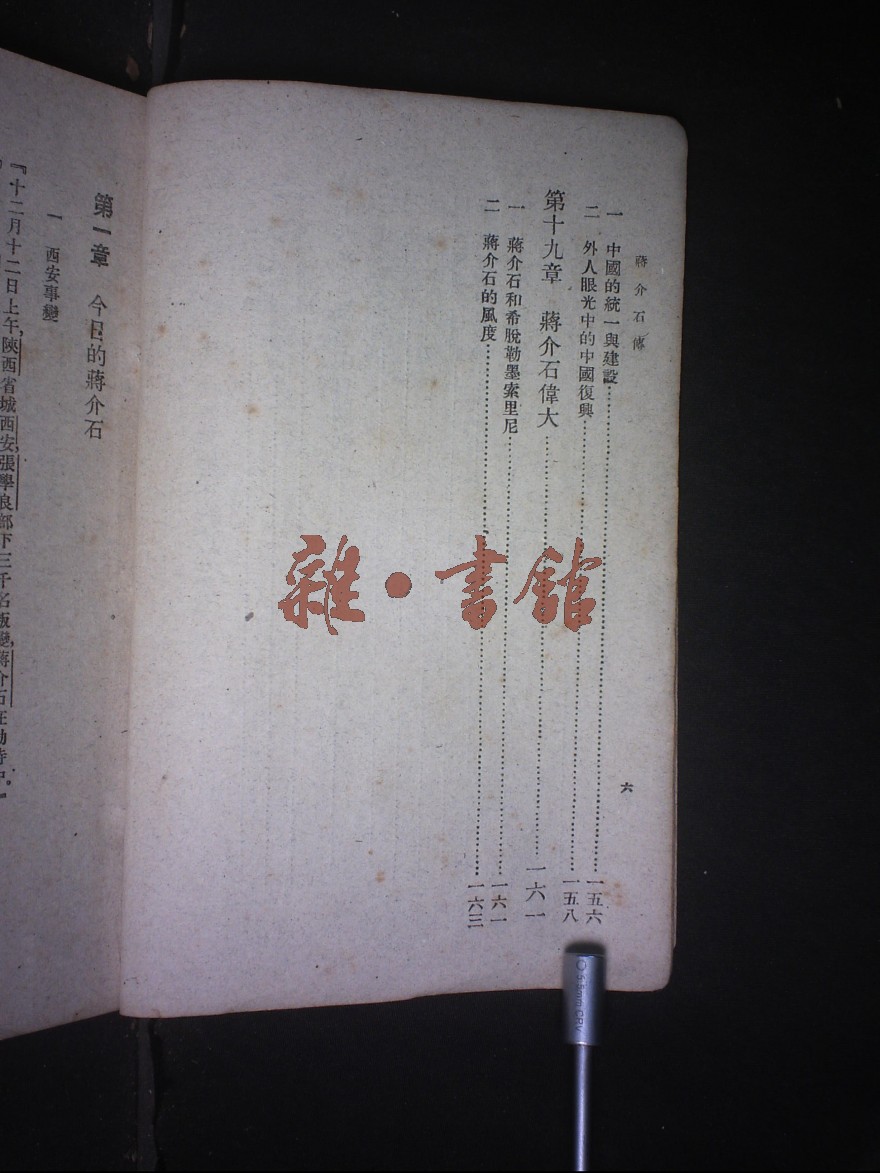 蔣介石傳
六
一 中國的統一與建設……一五六
二 外人眼光中的中國復興……一五八
第十九章 蔣介石偉大……一六一
一 蔣介石和希脫勒墨索里尼……一六一
二 蔣介石的風度……一六三
第一章 今日的蔣介石
一 西安事變
『十二月十二日上午,陝西省城西安,張學良部下三千名叛變,蔣介石在
雜·書館
5.5mm CRV